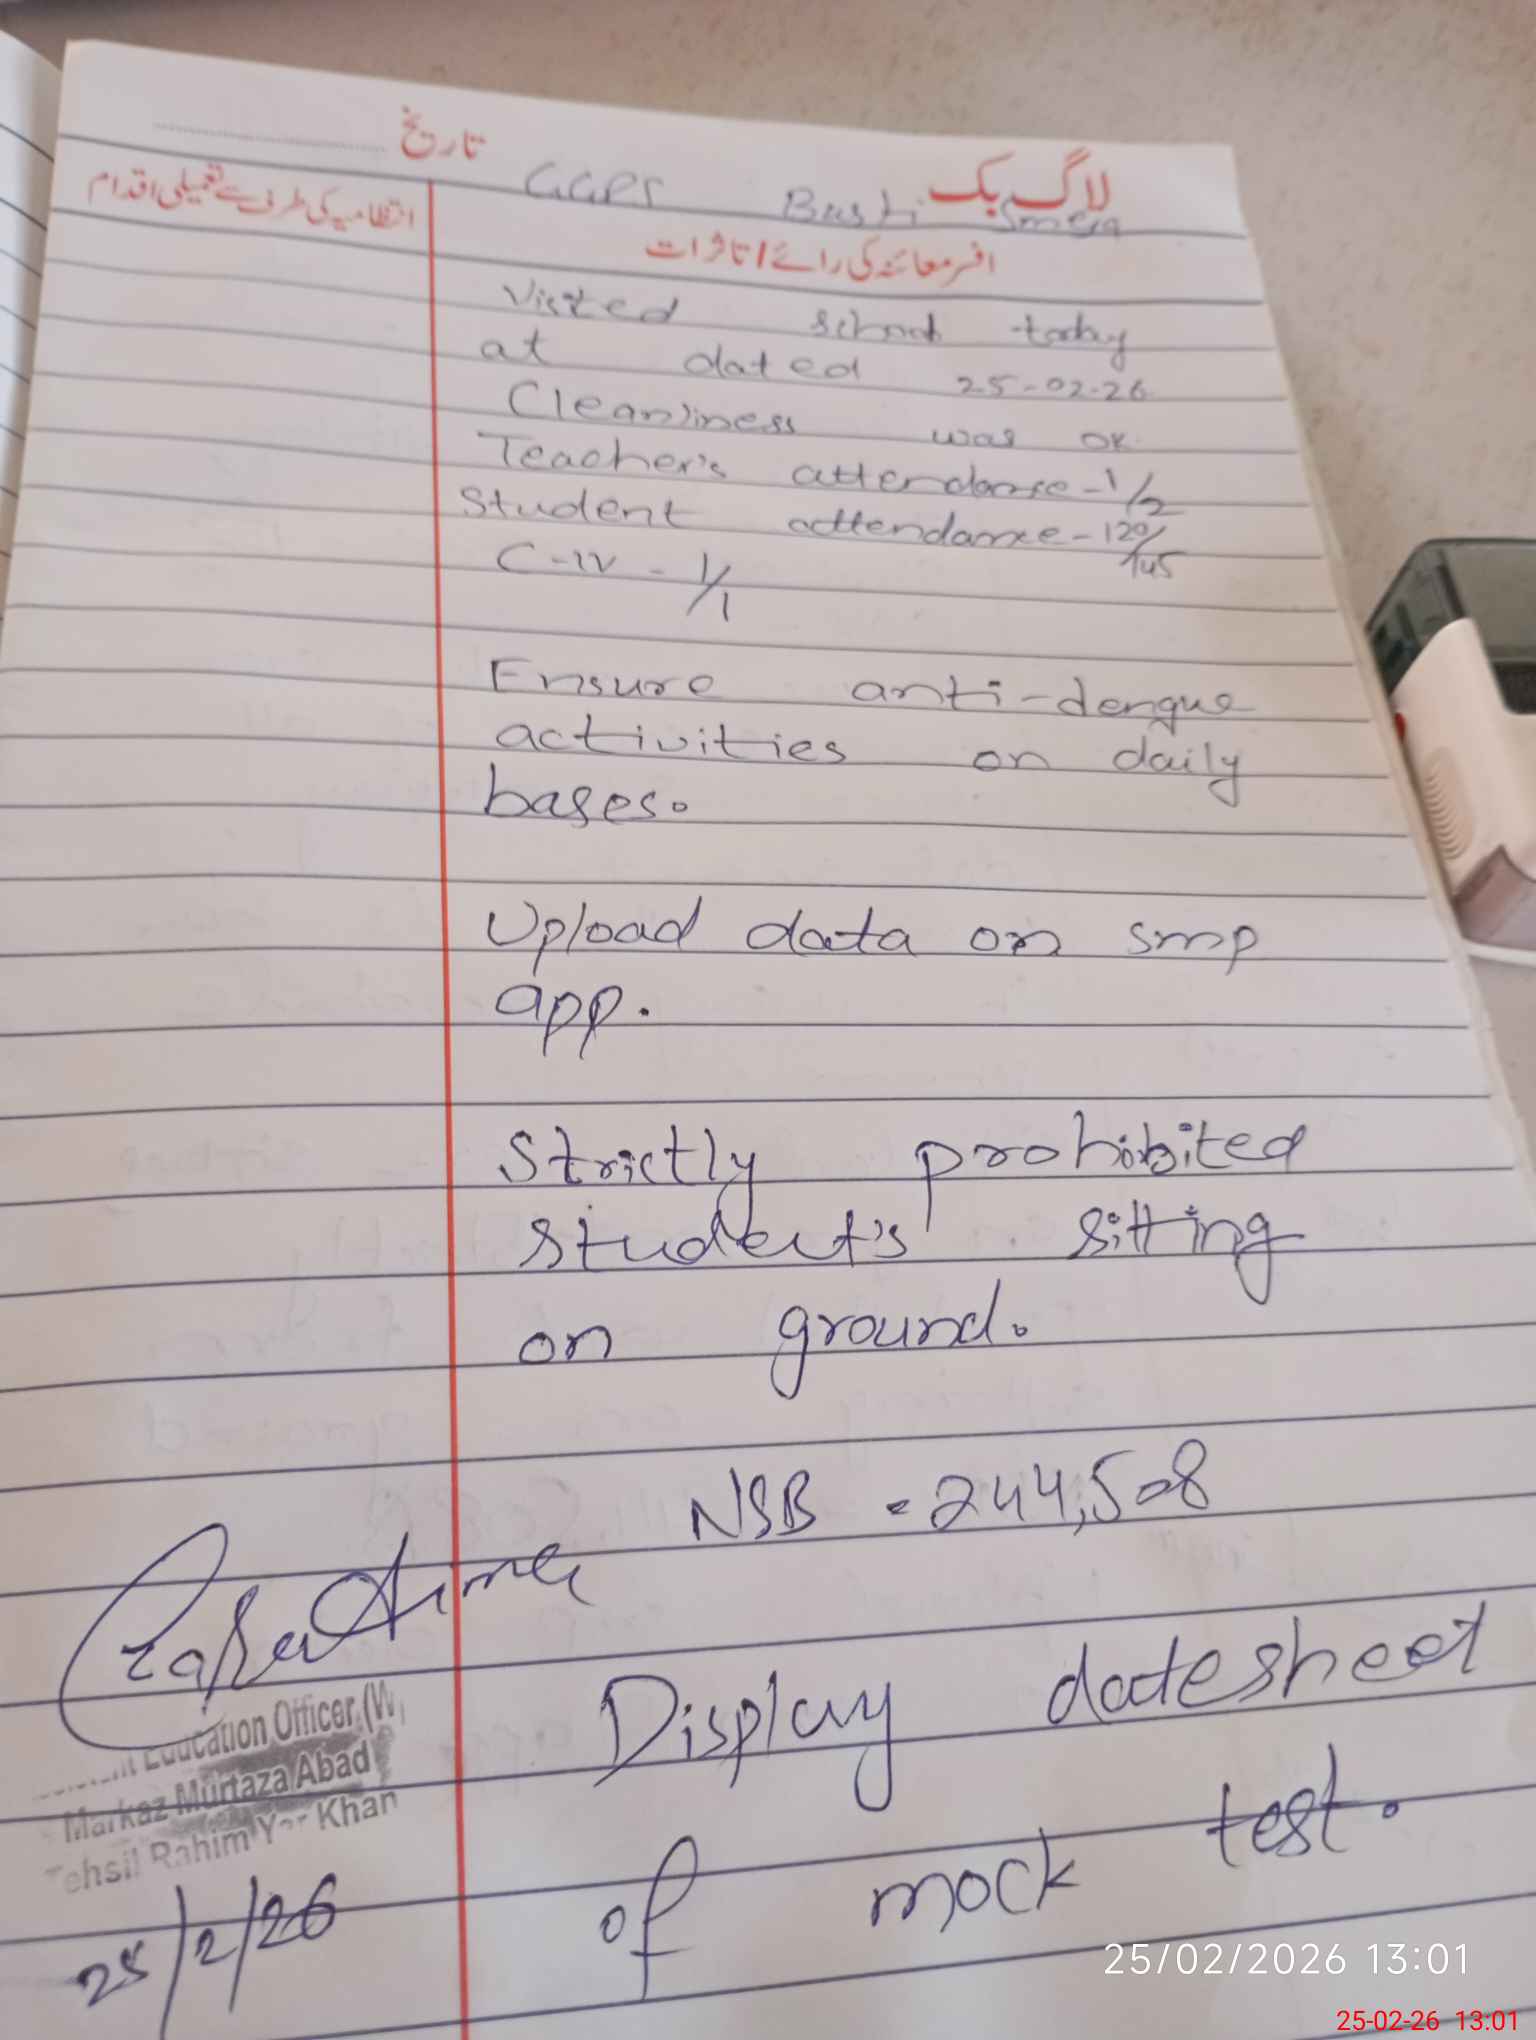 تاریخ
لاگ بک
GGPS Basti
انتظامیہ کی طرف سے تعمیلی اقدام
افسر معائنہ کی رائے / تاثرات
Visited school today
at dated 25-02-26
Cleanliness was ok
Teacher's attendance - 1/2
Student attendance - 120/145
C-IV - 1/1
Ensure anti-dengue
activities on daily
bases.
Upload data on smp
app.
Strictly prohibited
student's sitting
on ground.
NSB = 244,508
Display datesheet
of mock test.
Education Officer (W
Markaz Murtaza Abad
Tehsil Rahim Yar Khan
25/2/26
25/02/2026 13:01
25-02-26 13:01